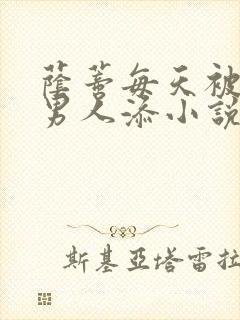 蔭蒂每天被
男人添小說
斯基亞塔雷拉